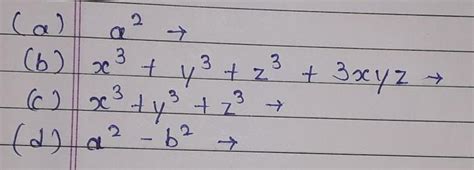 (a) a² →
(b) x³ + y³ + z³ + 3xyz →
(c) x³ + y³ + z³ →
(d) a² - b² →